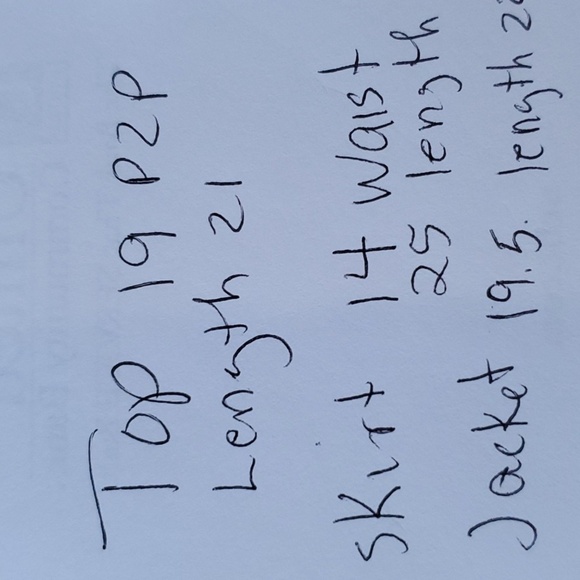 Top 19 P2P
Length 21
Skirt 14 Waist
25 length
Jacket 19.5. length